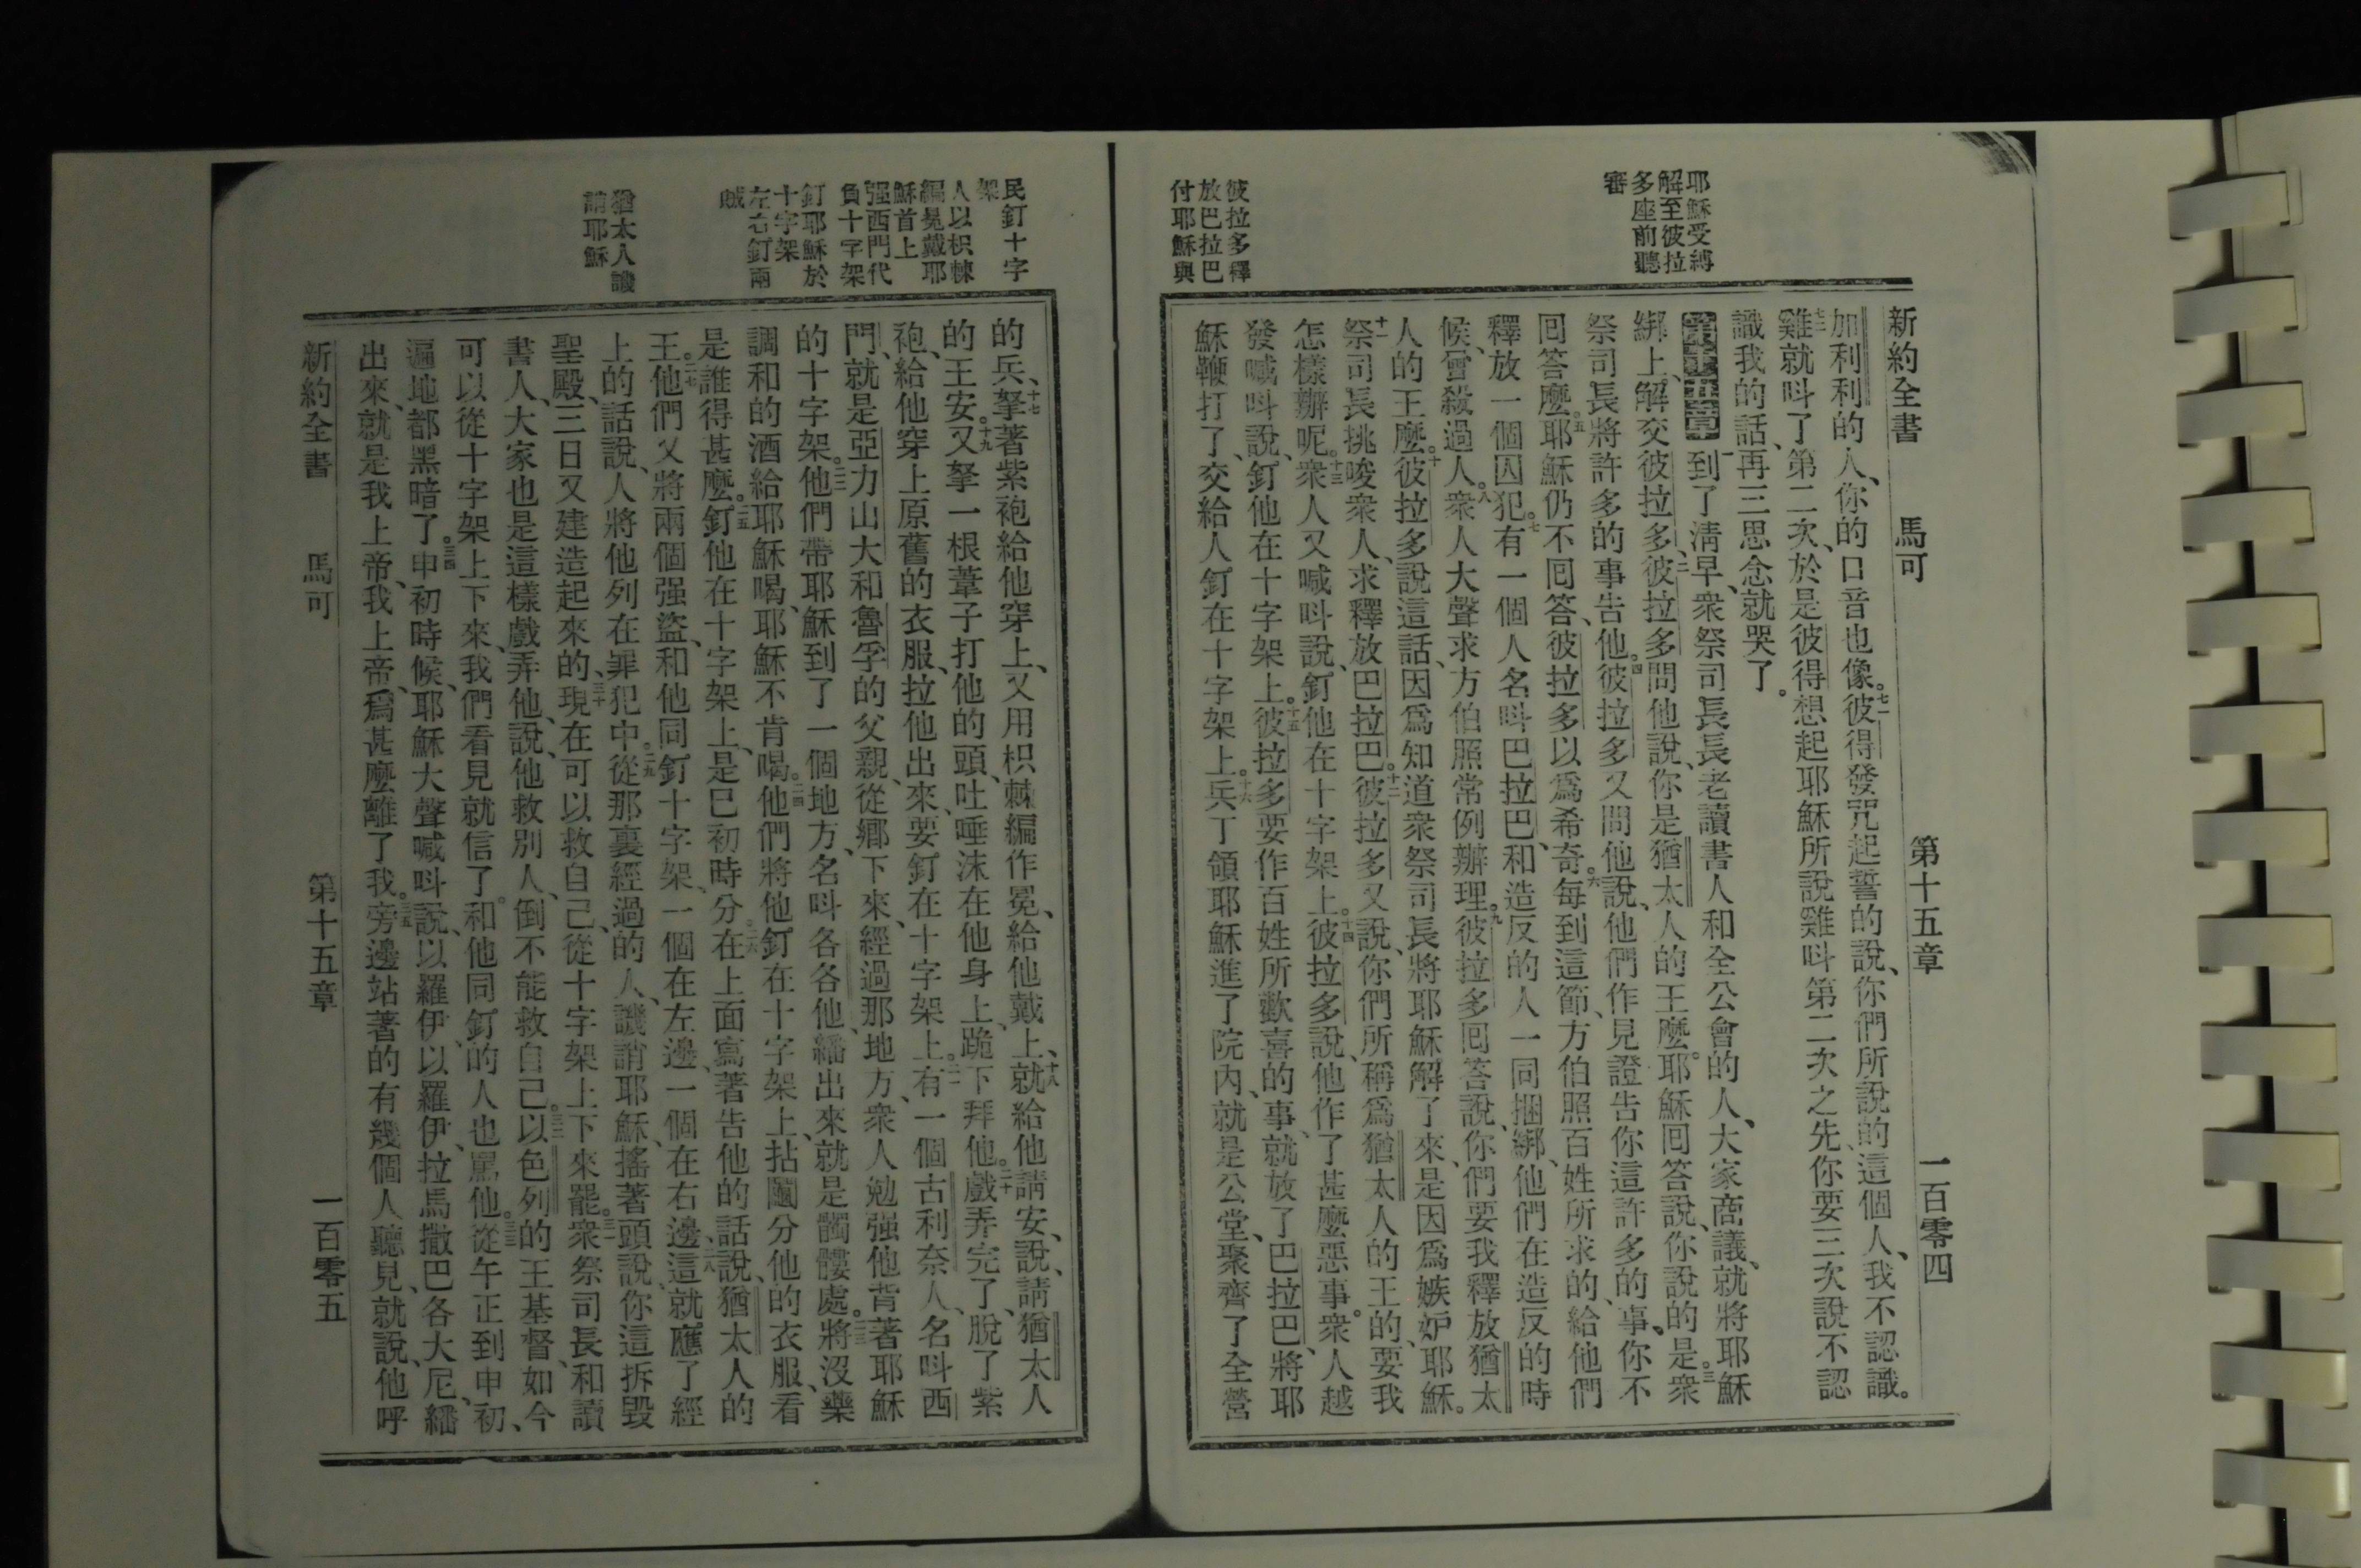 耶穌受縛
解至彼拉
多座前聽
審
彼拉多釋
放巴拉巴
付耶穌與
新約全書 馬可 第十五章 一百零四
加利利的人、你的口音也像。七一彼得發咒起誓的說、你們所說的這個人、我不認識。
七二雞就呌了、第二次、於是彼得想起耶穌所說雞呌第二次之先、你要三次說不認
識我的話、再三思念就哭了。
第十五章一到了清早、衆祭司長長老讀書人和全公會的人、大家商議、就將耶穌
綁上、解交彼拉多、二彼拉多問他說、你是猶太人的王麽。耶穌囘答說、你說的是。三衆
祭司長將許多的事告他。四彼拉多又問他說、他們作見證告你這許多的事、你不
囘答麽。五耶穌仍不囘答、彼拉多以爲希奇。六每到這節、方伯照百姓所求的、給他們
釋放一個囚犯。七有一個人名呌巴拉巴、和造反的人一同捆綁、他們在造反的時
候、曾殺過人。八衆人大聲求方伯照常例辦理。九彼拉多囘答說、你們要我釋放猶太
人的王麽。十彼拉多說這話、因爲知道衆祭司長、將耶穌解了來、是因爲嫉妒耶穌。
十一祭司長挑唆衆人、求釋放巴拉巴。十二彼拉多又說、你們所稱爲猶太人的王的、要我
怎樣辦呢。十三衆人又喊呌說、釘他在十字架上。十四彼拉多說、他作了甚麽惡事。衆人越
發喊呌說、釘他在十字架上。十五彼拉多要作百姓所歡喜的事、就放了巴拉巴、將耶
穌鞭打了、交給人釘在十字架上。十六兵丁領耶穌進了院內、就是公堂、聚齊了全營
民釘十字
架
人以枳棘
編冕戴耶
穌首上
强西門代
負十字架
釘耶穌於
十字架
左右釘兩
賊
猶太人譏
誚耶穌
的兵、十七拏著紫袍給他穿上、又用枳棘編作冕、給他戴上、十八就給他請安、說、請猶太人
的王安。十九又拏一根葦子打他的頭、吐唾沫在他身上、跪下拜他。二十戲弄完了、脫了紫
袍、給他穿上原舊的衣服、拉他出來、要釘在十字架上。二一有一個古利奈人、名呌西
門、就是亞力山大和魯孚的父親、從鄉下來、經過那地方、衆人勉强他背著耶穌
的十字架。二二他們帶耶穌到了一個地方、名呌各各他、繙出來就是髑髏處。二三將沒藥
調和的酒給耶穌喝、耶穌不肯喝。二四他們將他釘在十字架上、拈鬮分他的衣服、看
是誰得甚麽。二五釘他在十字架上、是巳初時分。二六在上面寫著告他的話說、猶太人的
王。二七他們又將兩個强盜、和他同釘十字架、一個在左邊、一個在右邊、二八這就應了經
上的話說、人將他列在罪犯中。二九從那裏經過的人、譏誚耶穌、搖著頭說、你這拆毀
聖殿、三日又建造起來的、三十現在可以救自己、從十字架上下來罷。三一衆祭司長和讀
書人、大家也是這樣戲弄他、說、他救別人、倒不能救自己。三二以色列的王基督、如今
可以從十字架上下來、我們看見就信了。和他同釘的人也罵他。三三從午正到申初、
遍地都黑暗了。三四申初時候、耶穌大聲喊呌說、以羅伊、以羅伊、拉馬撒巴各大尼、繙
出來、就是我上帝、我上帝、爲甚麽離了我。三五旁邊站著的有幾個人聽見、就說、他呼
新約全書 馬可 第十五章 一百零五